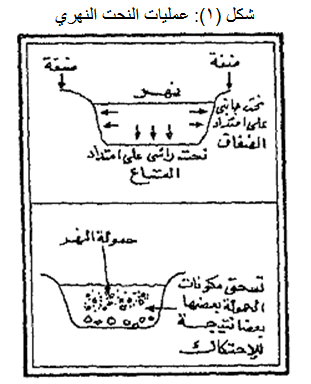 شكل (١): عمليات النحت النهري
ضفة
ضفة
نهر
نحت جانبي
على امتداد
الضفاف
نحت رأسي على امتداد
القاع
حمولة النهر
تسحق مكونات
الحمولة بعضها
بعضا نتيجة
للاحتكاك